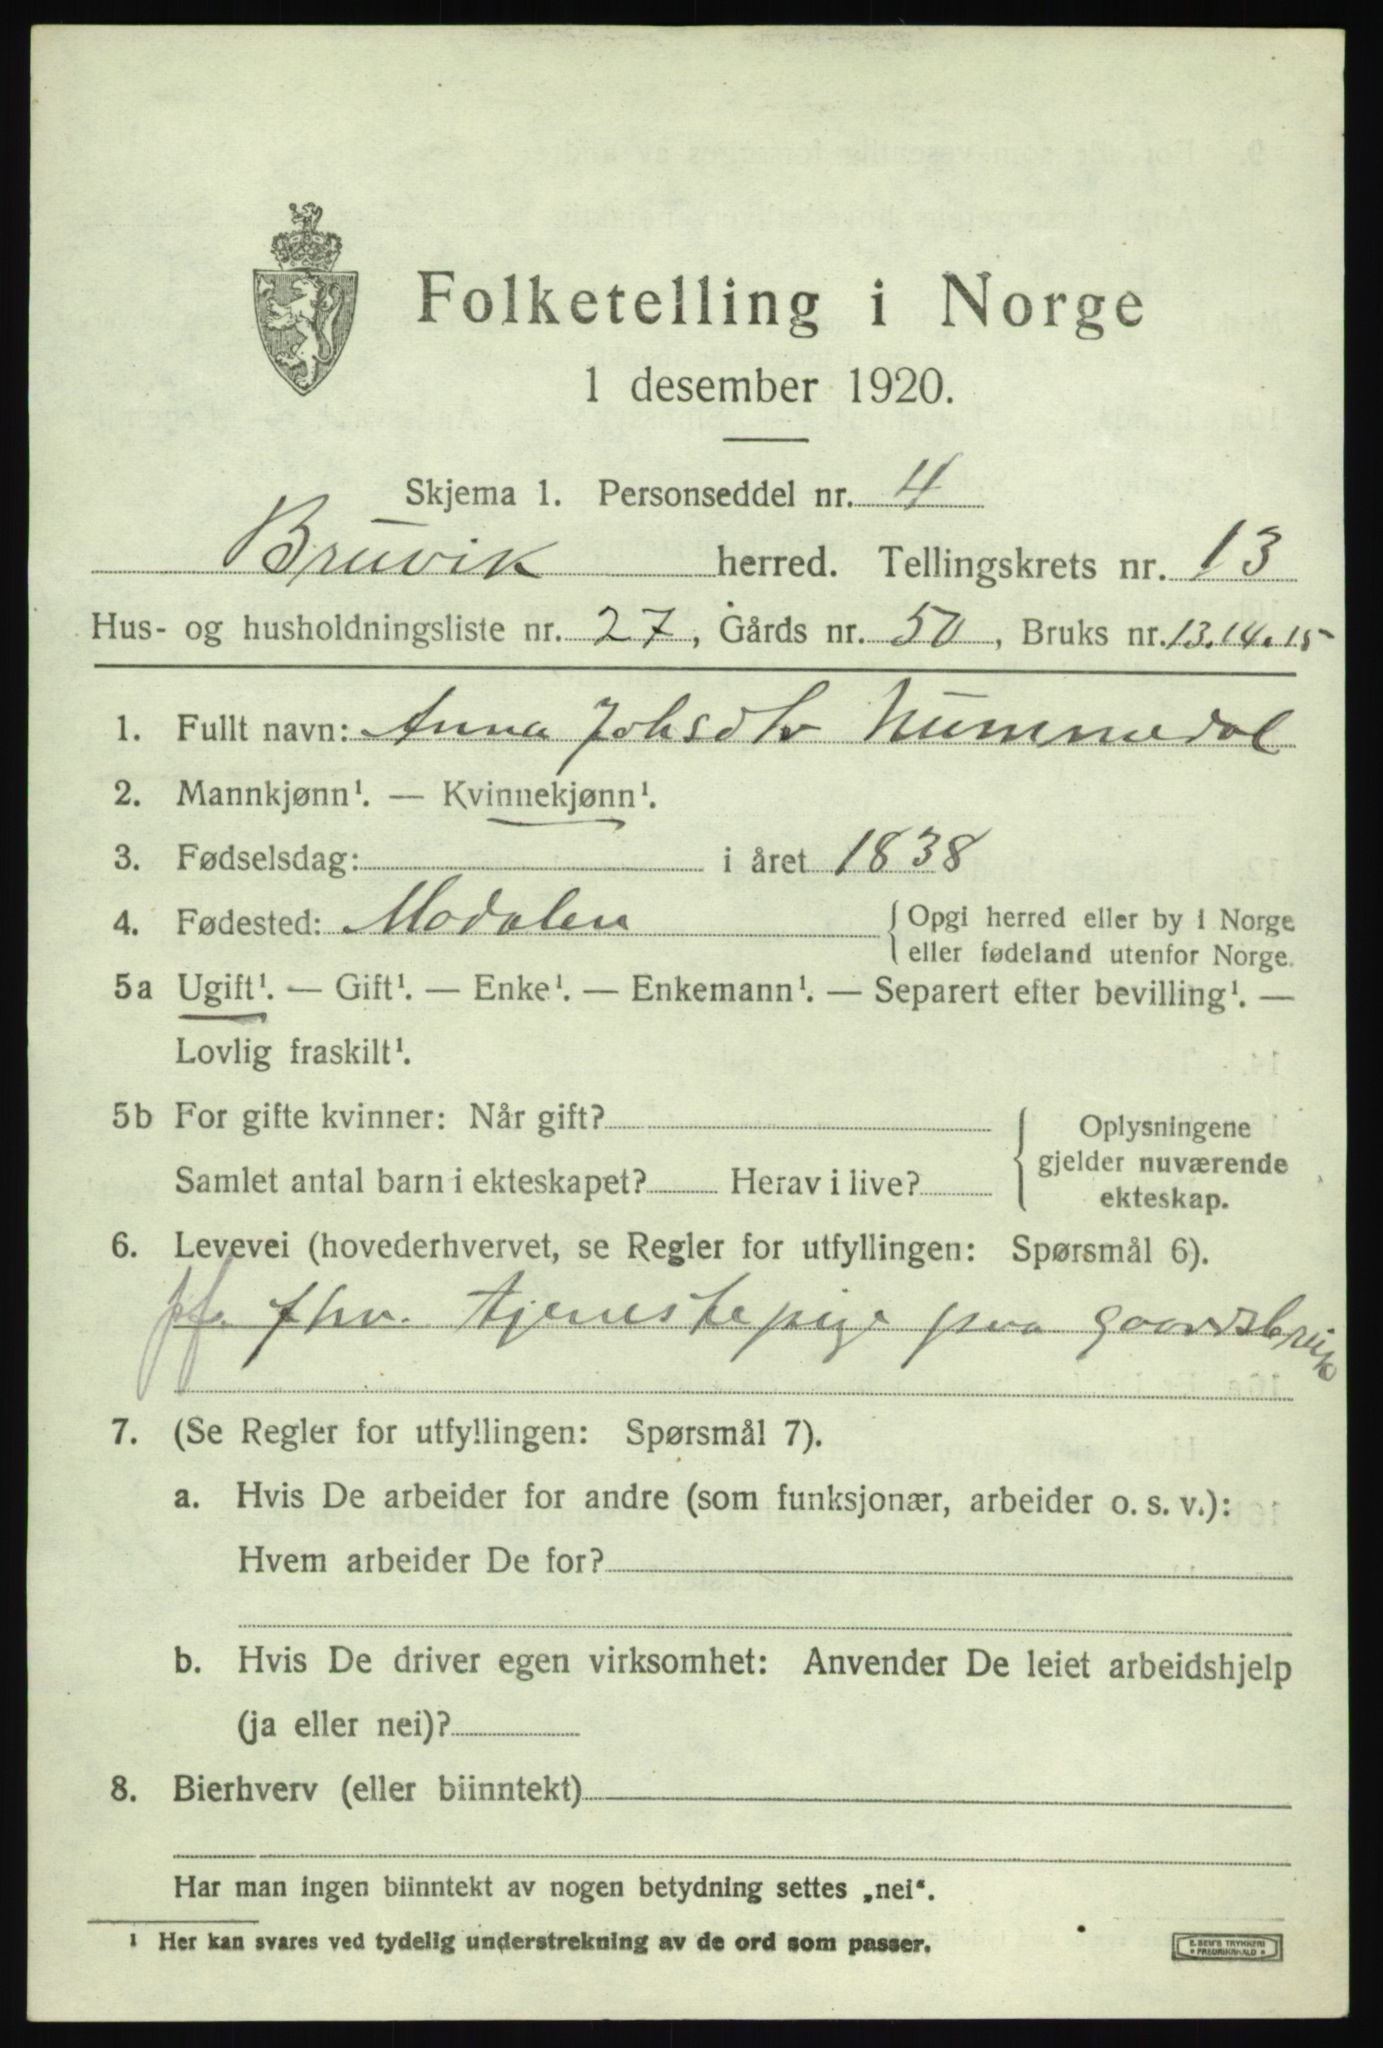 Folketelling i Norge
1 desember 1920.
Skjema 1. Personseddel nr. 4
Bruvik herred. Tellingskrets nr. 13
Hus- og husholdningsliste nr. 27, Gårds nr. 50, Bruks nr. 13.14.15
1. Fullt navn: Anna Johsdtr Nummedal
2. Mannkjønn¹. — Kvinnekjønn¹.
3. Fødselsdag: i året 1838
4. Fødested: Modalen { Opgi herred eller by i Norge
eller fødeland utenfor Norge.
5a Ugift¹. — Gift¹. — Enke¹. — Enkemann¹. — Separert efter bevilling¹. —
Lovlig fraskilt¹.
5b For gifte kvinner: Når gift?
Samlet antal barn i ekteskapet? Herav i live?
{ Oplysningene
gjelder nuværende
ekteskap.
6. Levevei (hovederhvervet, se Regler for utfyllingen: Spørsmål 6).
pf. fhv. tjenestepige paa gaardsbruk
7. (Se Regler for utfyllingen: Spørsmål 7).
a. Hvis De arbeider for andre (som funksjonær, arbeider o. s. v.):
Hvem arbeider De for?
b. Hvis De driver egen virksomhet: Anvender De leiet arbeidshjelp
(ja eller nei)?
8. Bierhverv (eller biinntekt)
Har man ingen biinntekt av nogen betydning settes „nei“.
¹ Her kan svares ved tydelig understrekning av de ord som passer.
E. SEM'S TRYKKERI
• FREDRIKSHALD •